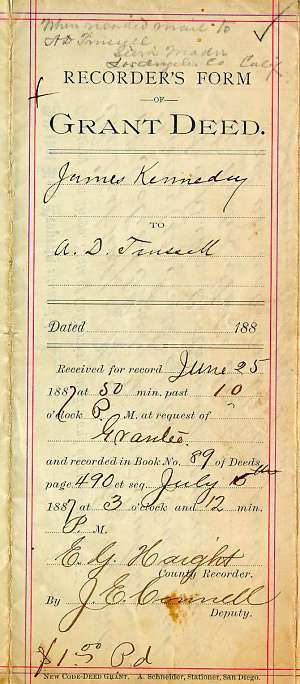 When recorded mail to
A D Trussell
Sierra Madre
Los Angeles Co Calif
RECORDER'S FORM
—OF—
GRANT DEED.
James Kennedy
TO
A. D. Trussell
Dated 188
Received for record June 25
1887 at 50 min. past 10
o'clock P. M. at request of
Grantee
and recorded in Book No. 89 of Deeds
page 490 et seq. July 15th
1887 at 3 o'clock and 12 min.
P M.
E. G. Haight
County Recorder.
By J. E. Connell
Deputy.
$1.00 Pd
NEW CODE-DEED GRANT. A. Schneider, Stationer, San Diego.